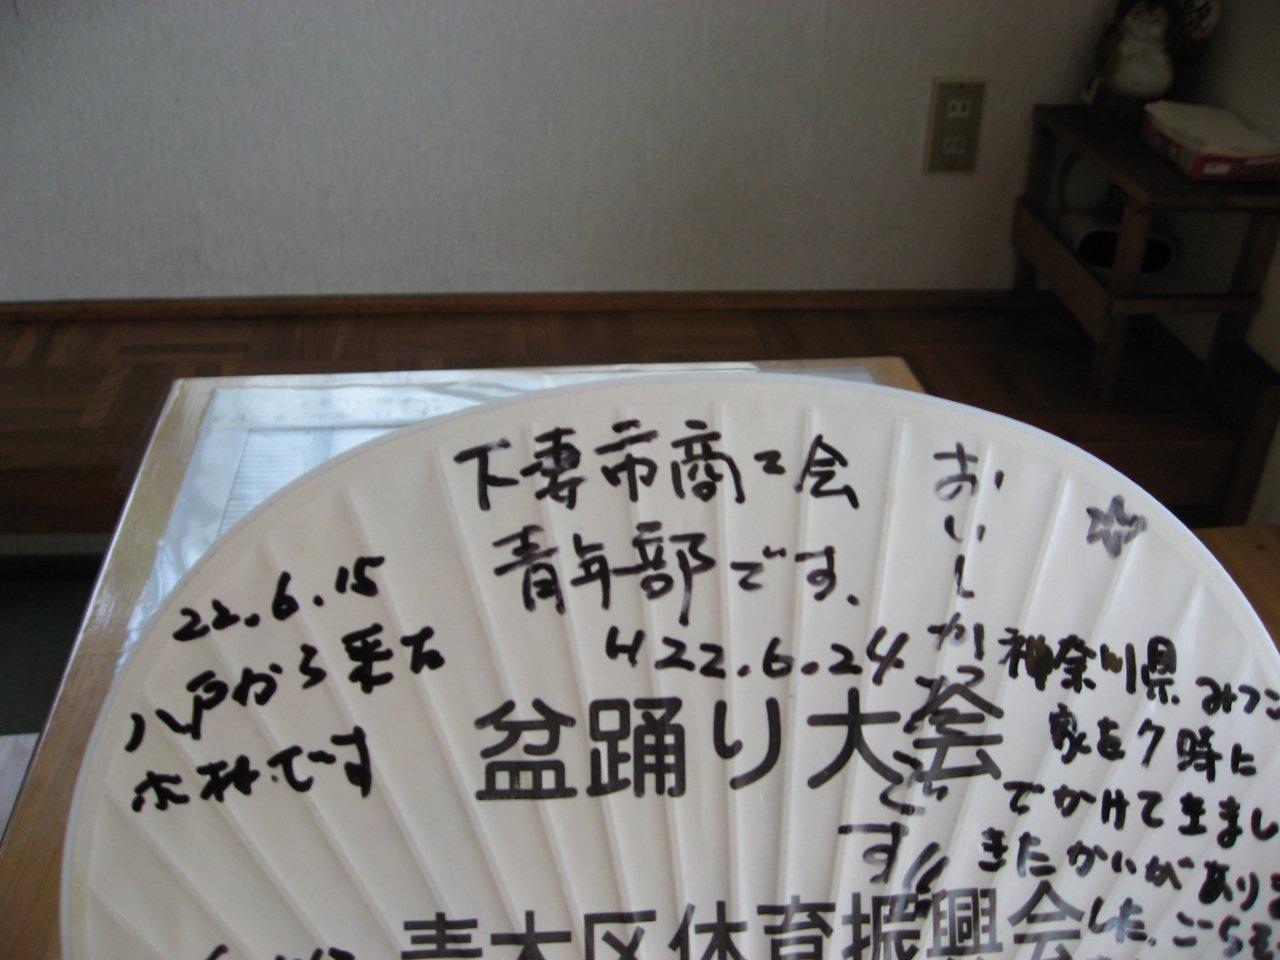 下妻市商工会
青年部です.
H22.6.24.
おいしかったです!!
22.6.15
八戸から来た
木村です
盆踊り大会
神奈川県
家を7時に
でかけて
きたかいがあり
した.
区体育振興会